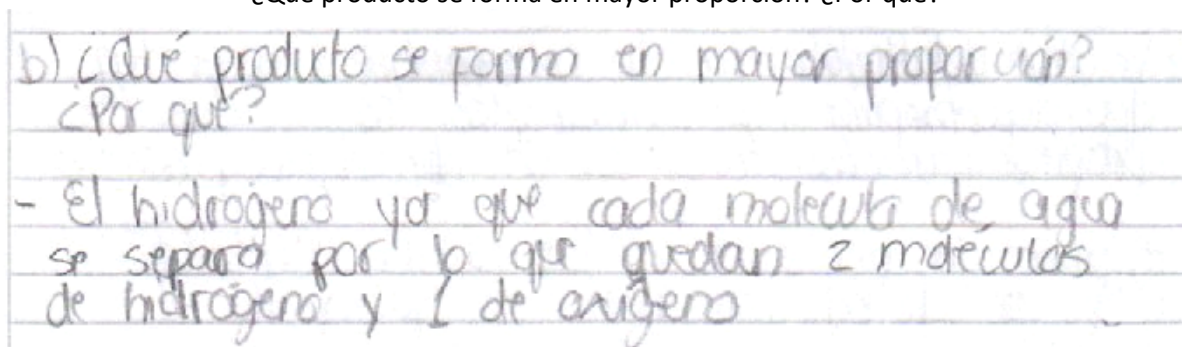 ¿Qué producto se forma en mayor proporción? ¿Por qué?
b) ¿Qué producto se formo en mayor proporción?
¿Por qué?
- El hidrógeno ya que cada molecula de agua
se separa por lo que quedan 2 moléculas
de hidrógeno y 1 de oxigeno